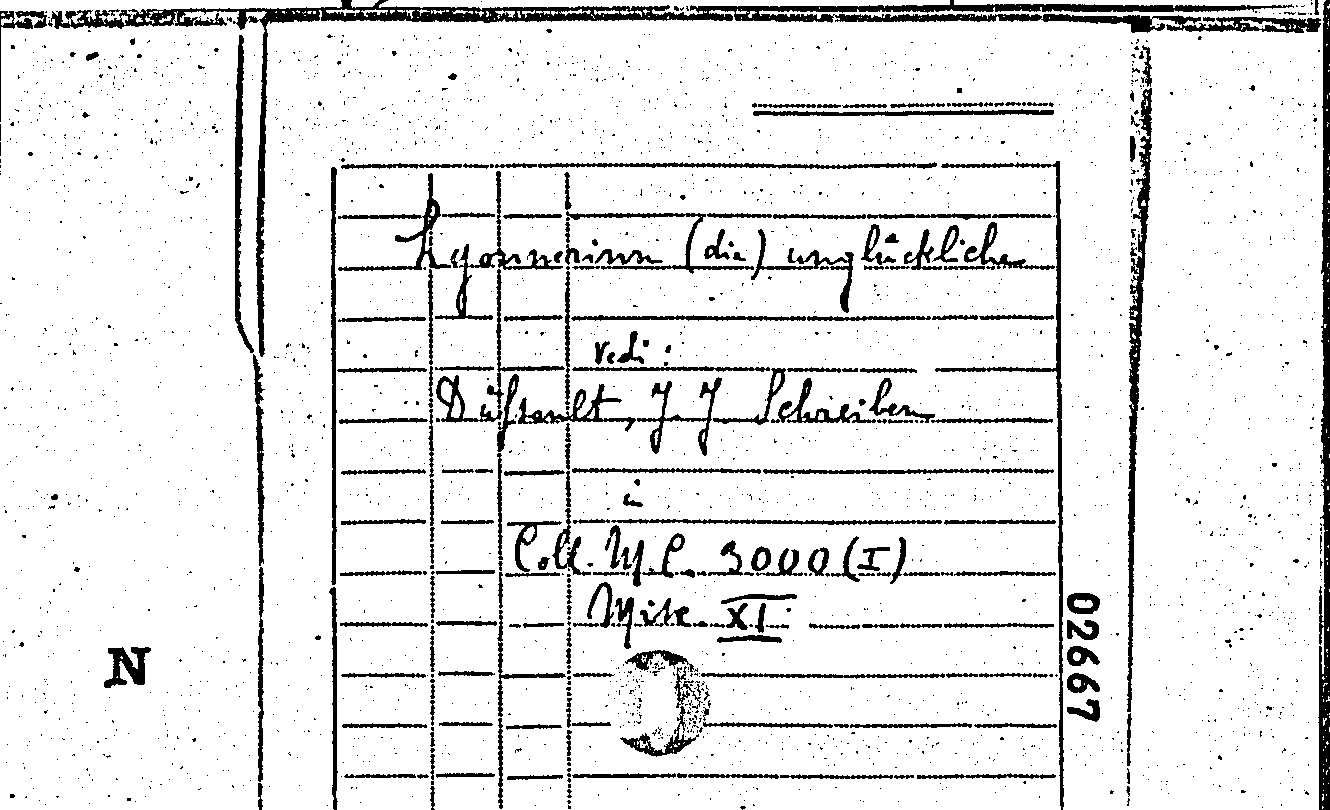 Lyonnerinn (die) unglückliche
vedi:
Düssault, J. J. Schreiben
in
Coll. M. C. 3000 (I)
Misc. XI.
02667
N